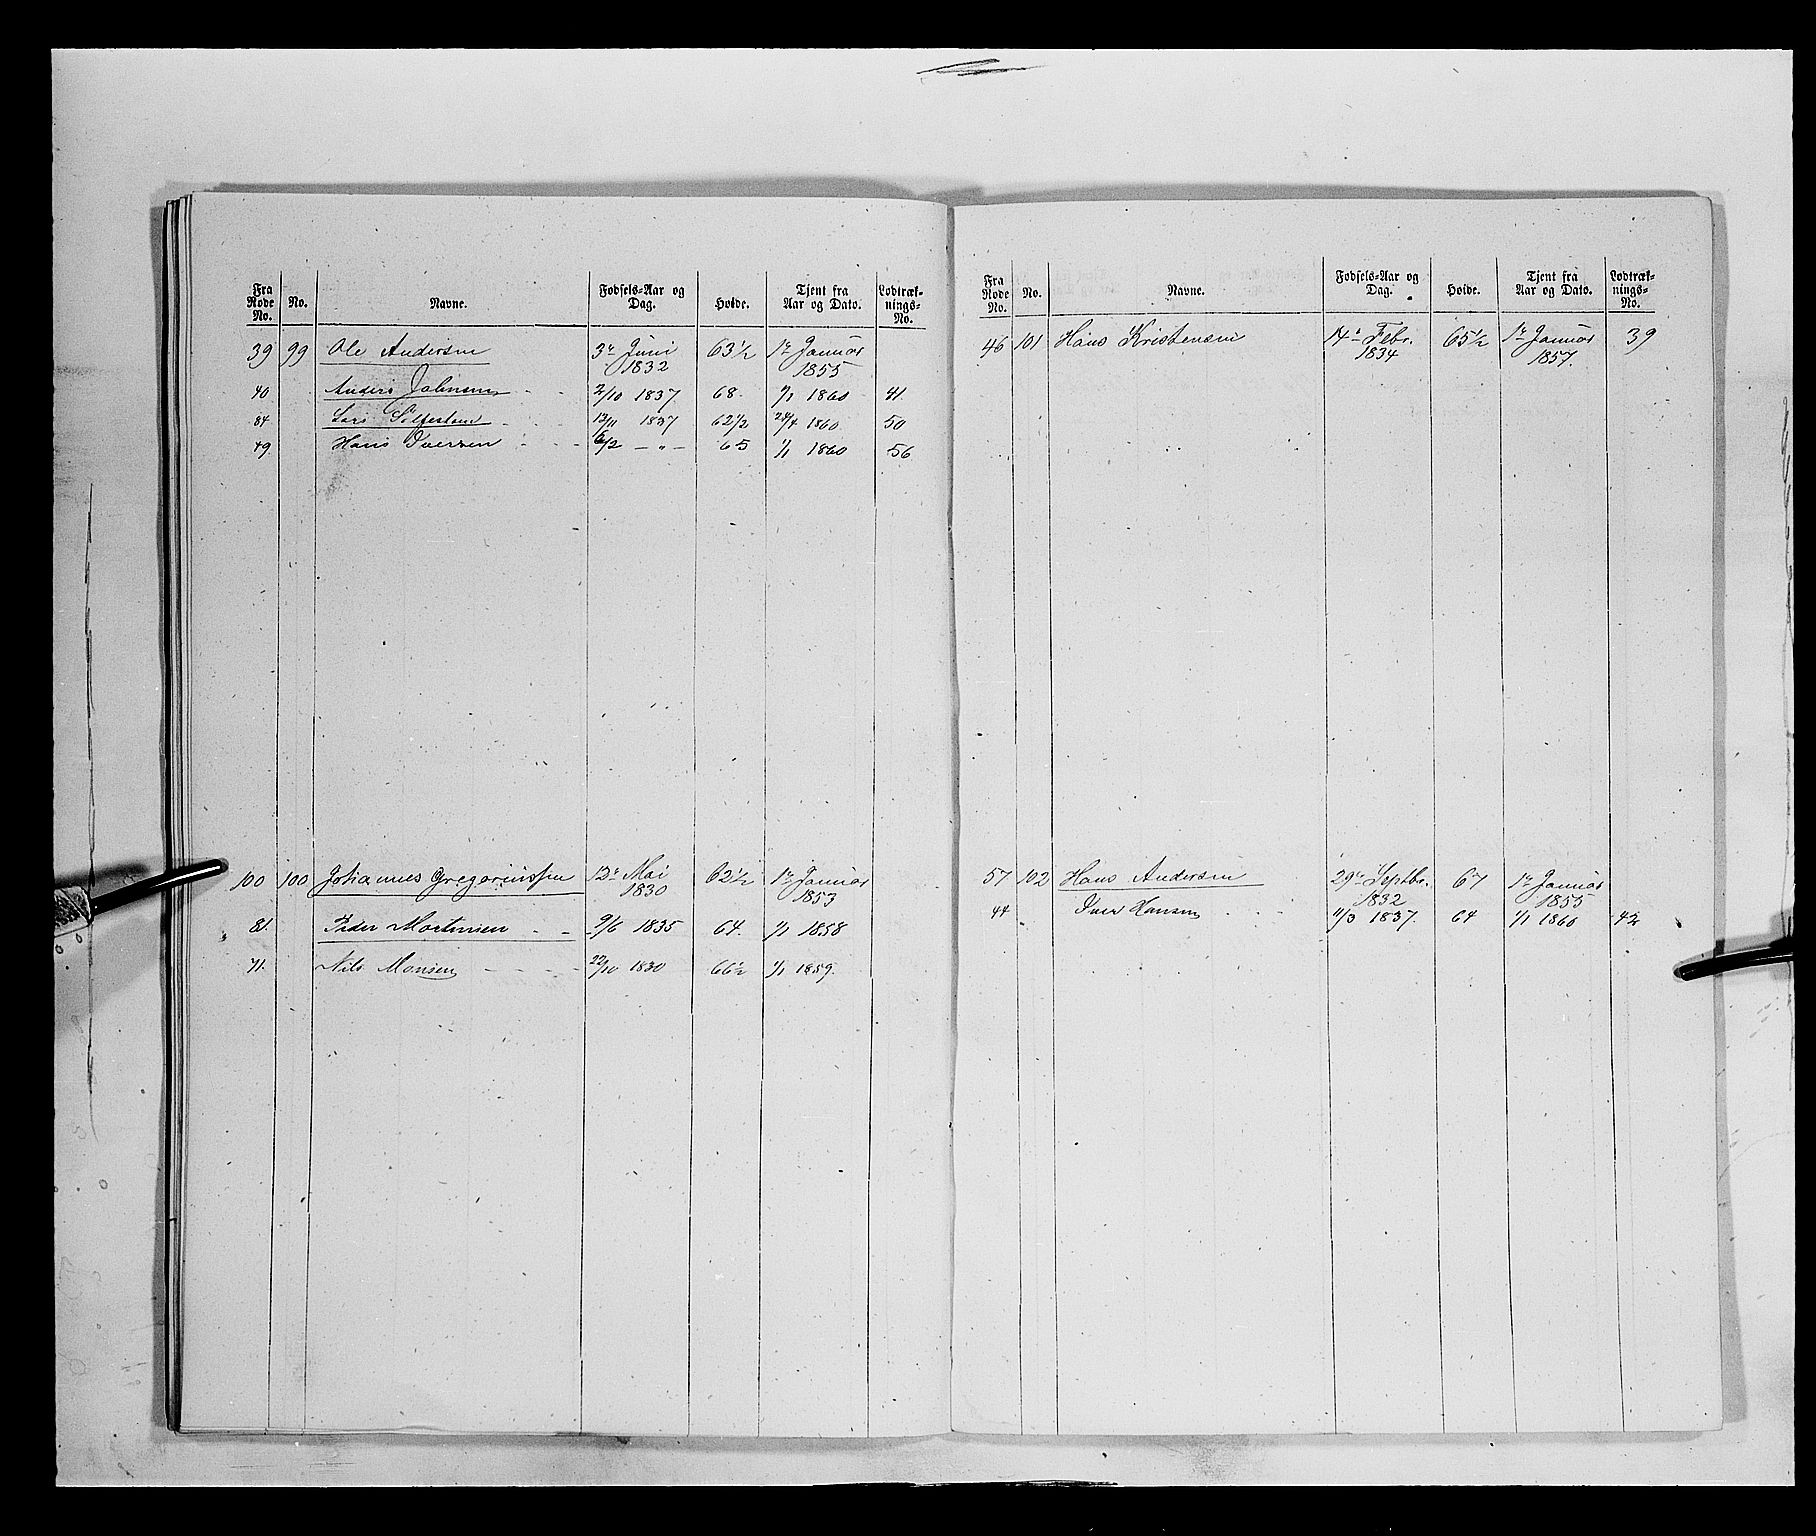 Fra Rode No. No. Navne. Fødsels-Aar og Dag. Høide. Tjent fra Aar og Dato. Lodtræk-nings-No.
39 99 Ole Andersen 3de Juni 1832 63½ 1te Januar 1855
40 Anders Johnsen - - 2/10 1837 68. 1/1 1860 41.
84 Lars - - 13/11 1837 62½ 24/4 1860 50
49. Hans Iversen - - - 6/2 - " - 65 1/1 1860 56
100 100 Johannes Gregoriussen 12te Mai 1830 62½ 1te Januar 1853
81. Peder Mortensen - - 9/6 1835 64. 1/1 1858
71. Nils Monsen - - - - 22/10 1830 66½ 1/1 1859.
Fra Rode No. No. Navne. Fødsels-Aar og Dag. Høide. Tjent fra Aar og Dato. Lodtræk-nings-No.
46 101 Hans Kristensen 14de Febr. 1834 65½ 1te Januar 1857. 39
57 102 Hans Andersen 29de Septbr. 1832 67 1te Januar 1855
44 Iver Hansen - - - 11/3 1837. 64 1/1 1860 42